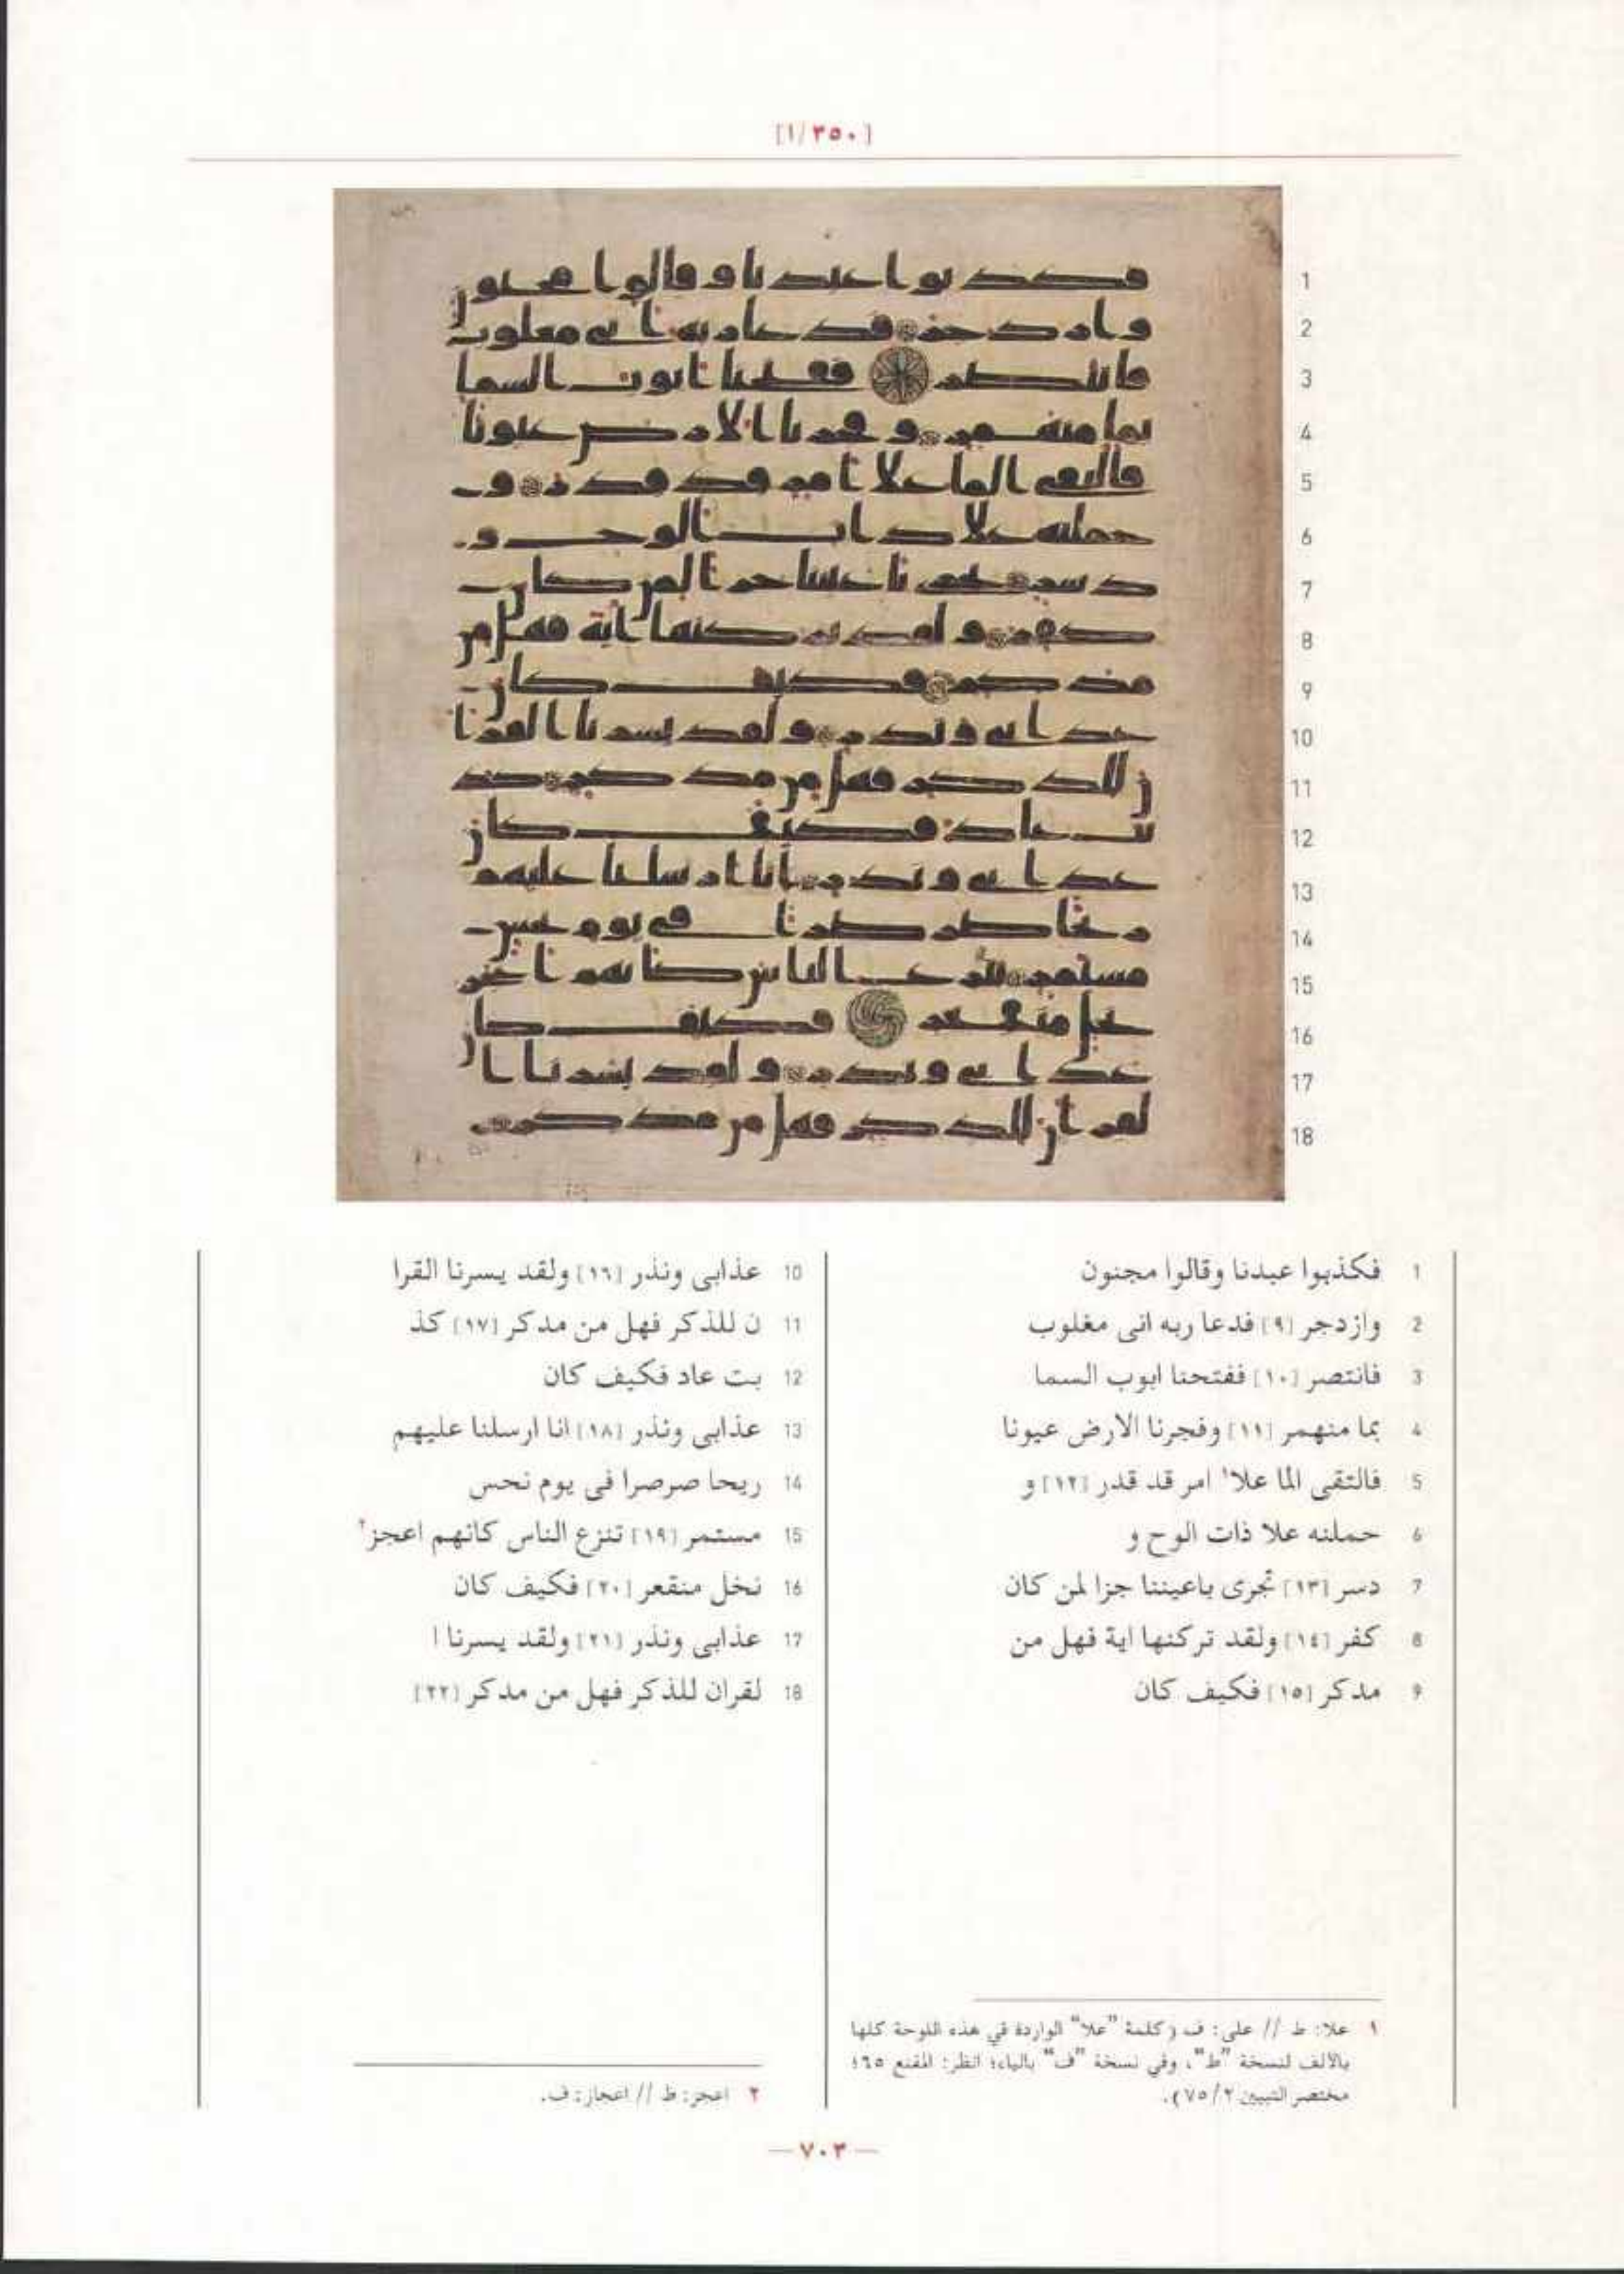 [١/٣٥٠]
1 فكذبوا عبدنا وقالوا مجنون
2 وازدجر [٩] فدعا ربه انى مغلوب
3 فانتصر [١٠] ففتحنا ابوب السما
4 بما منهمر [١١] وفجرنا الارض عيونا
5 فالتقى الما علا١ امر قد قدر [١٢] و
6 حملنه علا ذات الوح و
7 دسر [١٣] تجرى باعيننا جزا لمن كان
8 كفر [١٤] ولقد تركنها اية فهل من
9 مدكر [١٥] فكيف كان
10 عذابى ونذر [١٦] ولقد يسرنا القرا
11 ن للذكر فهل من مدكر [١٧] كذ
12 بت عاد فكيف كان
13 عذابى ونذر [١٨] انا ارسلنا عليهم
14 ريحا صرصرا فى يوم نحس
15 مستمر [١٩] تنزع الناس كانهم اعجز٢
16 نخل منقعر [٢٠] فكيف كان
17 عذابى ونذر [٢١] ولقد يسرنا ا
18 لقران للذكر فهل من مدكر [٢٢]
١ علا: ط // على: ف (كلمة "علا" الواردة في هذه اللوحة كلها
بالألف لنسخة "ط"، وفي نسخة "ف" بالياء؛ انظر: المقنع ٦٥؛
مختصر التبيين ٧٥/٢).
٢ اعجز: ط // اعجاز: ف.
— ٧٠٣ —